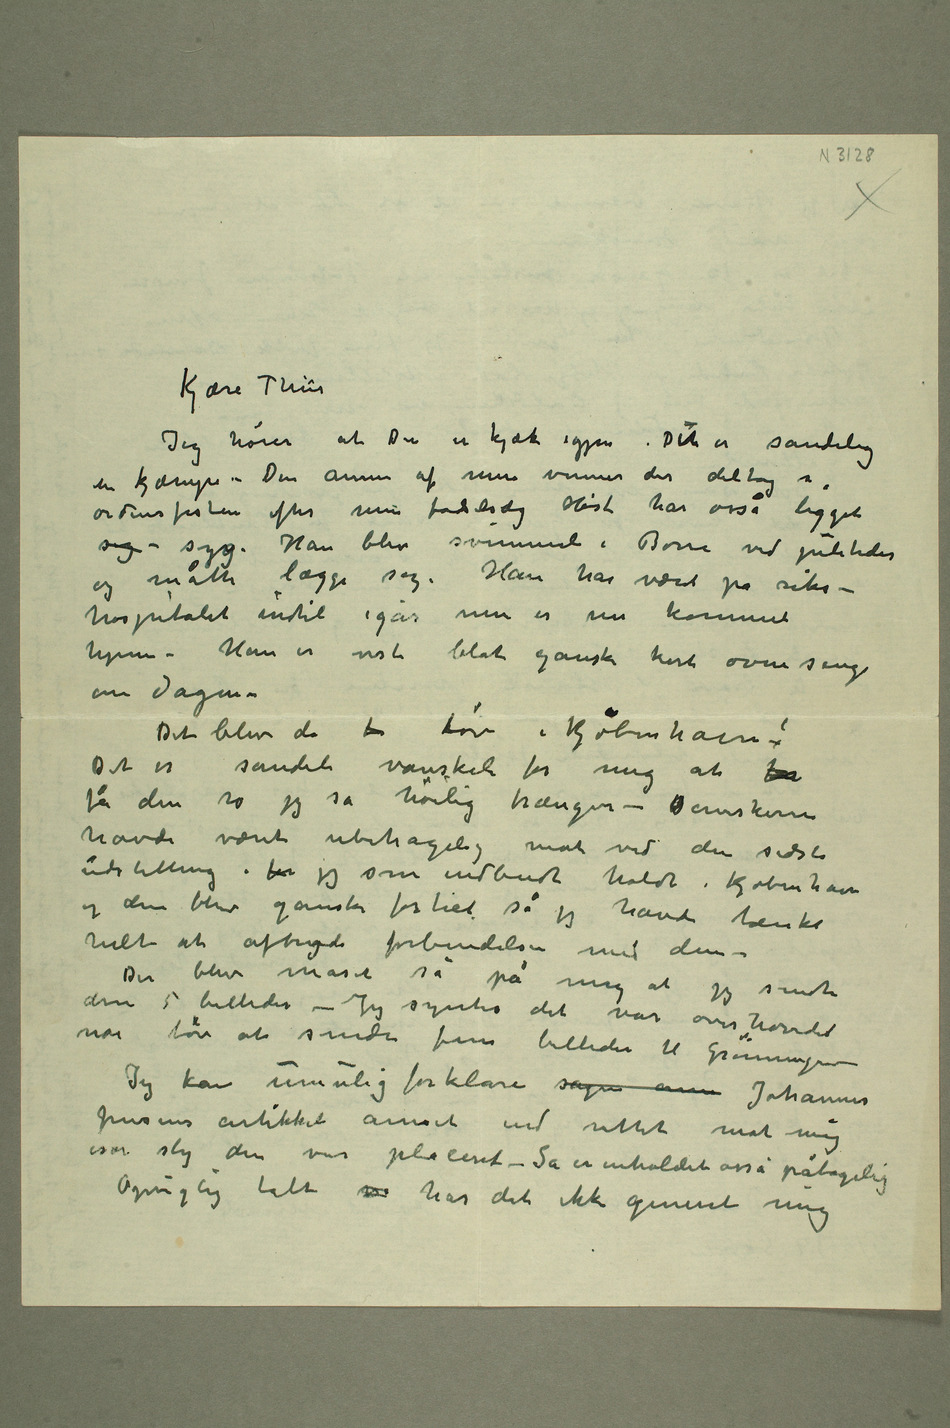 N 3128
Kjære Thiis
Jeg hører at De er kjæk igjen. Dét er sandelig
en kjæmpe – Den annen af mine venner der deltog i
ordensfesten efter min fødselsdag Høst har også ligget
sig – syg. Han blev svimmel i Borre ved juletider
og måtte lægge sig. Han har været på riks-
hospitalet indtil igår men er nu kommet
hjem – Han er visst blot ganske kort oven senge
om dagen –
Det blev da tøv i Kjøbenhavn!
Det er sandelig vanskelig for mig at for
få den ro jeg så høilig trænger – Danskerne
havde været ubehagelig mot ved den sidste
udstilling i jeg som indbudt holdt i Kjøbenhavn
og den blev ganske fortiet så jeg havde tænkt
helt at afbryde forbindelsen med dem –
Der blev maset så på mig at jeg sendte
dem 5 billeder – Jeg syntes det var overhovedet
noe tøv at sende fem billeder til Grønningen –
Jeg kan umulig forklare sagen annet Johannes
Jensens artikkel annet end rettet mot mig
især slig den var placeret – Så er inholdet også påtagelig
Oprigtig talt har det ikke generet mig